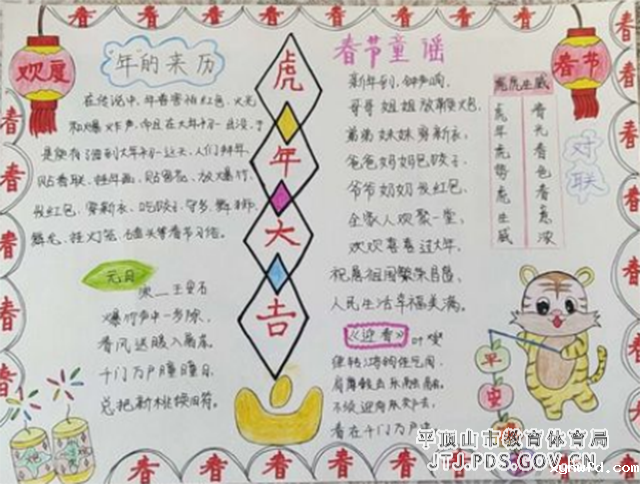 欢度
春节
年的来历
在传说中,年兽害怕红色、火光
和爆炸声,而且在大年初一出没,于
是便有了每到大年初一这天,人们拜年、
贴春联、挂年画、贴窗花、放爆竹、
发红包、穿新衣、吃饺子、守岁、舞狮、
舞龙、挂灯笼、磕头等春节习俗。
元日
宋 王安石
爆竹声中一岁除,
春风送暖入屠苏。
千门万户曈曈日,
总把新桃换旧符。
虎年大吉
春节童谣
新年到,钟声响,
哥哥姐姐放鞭炮,
弟弟妹妹穿新衣,
爸爸妈妈包饺子,
爷爷奶奶发红包,
全家人欢聚一堂,
欢欢喜喜过大年,
祝愿祖国繁荣昌盛,
人民生活幸福美满。
《迎春》
叶燮
不须迎向东郊去,
春在千门万户中
虎虎生威
虎年虎势虎生威
春光春色春意浓
对联
平安
春
平顶山市教育体育局
JTJ.PDS.GOV.CN